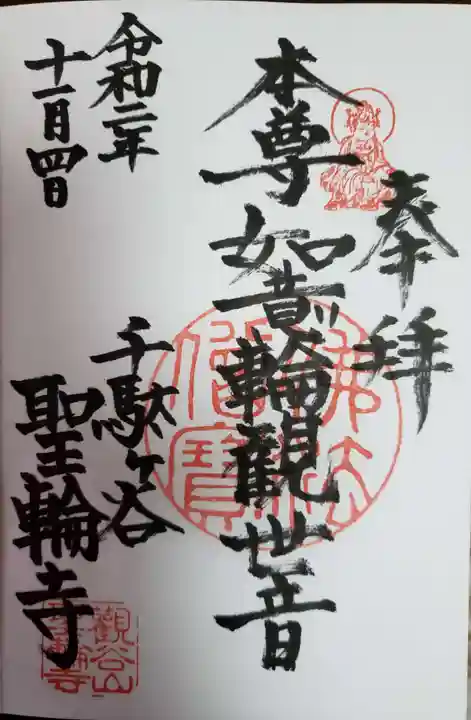 奉拝
本尊如意輪観世音
千駄ヶ谷
聖輪寺
令和二年
十一月四日
佛法僧寶
観谷山
聖輪寺